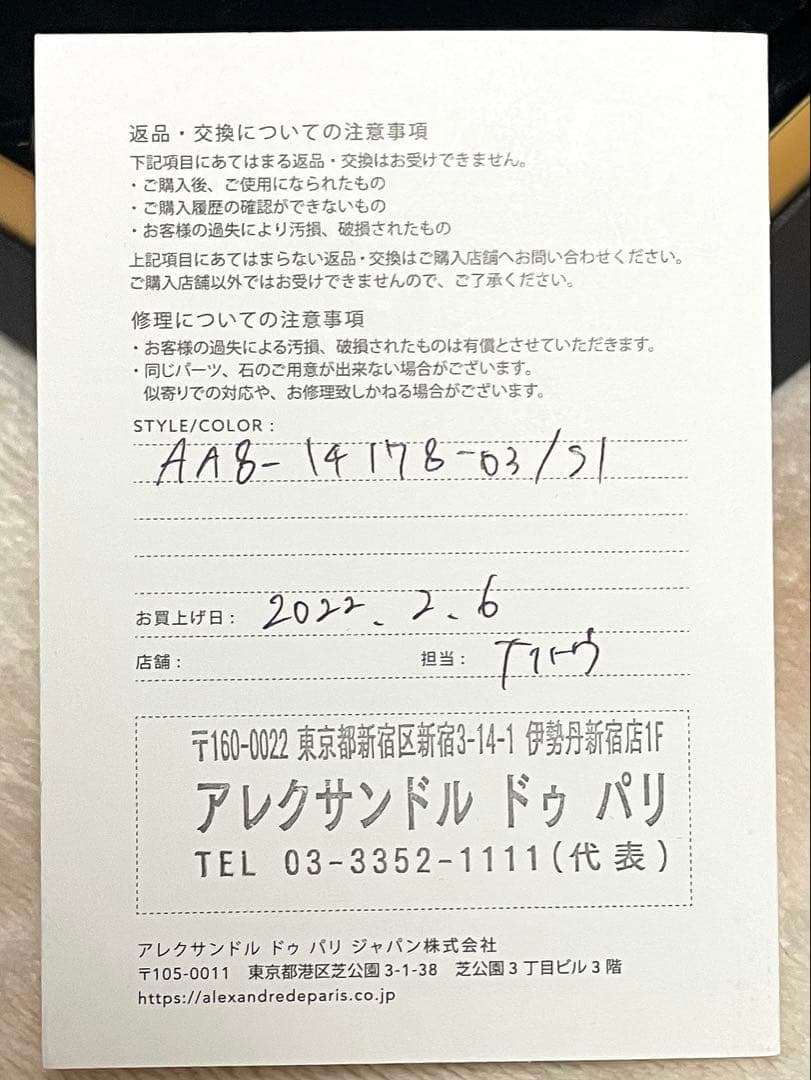 返品・交換についての注意事項
下記項目にあてはまる返品・交換はお受けできません。
・ご購入後、ご使用になられたもの
・ご購入履歴の確認ができないもの
・お客様の過失により汚損、破損されたもの
上記項目にあてはまらない返品・交換はご購入店舗へお問い合わせください。
ご購入店舗以外ではお受けできませんので、ご了承ください。
修理についての注意事項
・お客様の過失による汚損、破損されたものは有償とさせていただきます。
・同じパーツ、石のご用意が出来ない場合がございます。
似寄りでの対応や、お修理致しかねる場合がございます。
STYLE/COLOR :
AA8-14178-03/S1
お買上げ日: 2022.2.6
店舗: 担当:
〒160-0022 東京都新宿区新宿3-14-1 伊勢丹新宿店1F
アレクサンドル ドゥ パリ
TEL 03-3352-1111(代表)
アレクサンドル ドゥ パリ ジャパン株式会社
〒105-0011 東京都港区芝公園3-1-38 芝公園3丁目ビル3階
https://alexandredeparis.co.jp